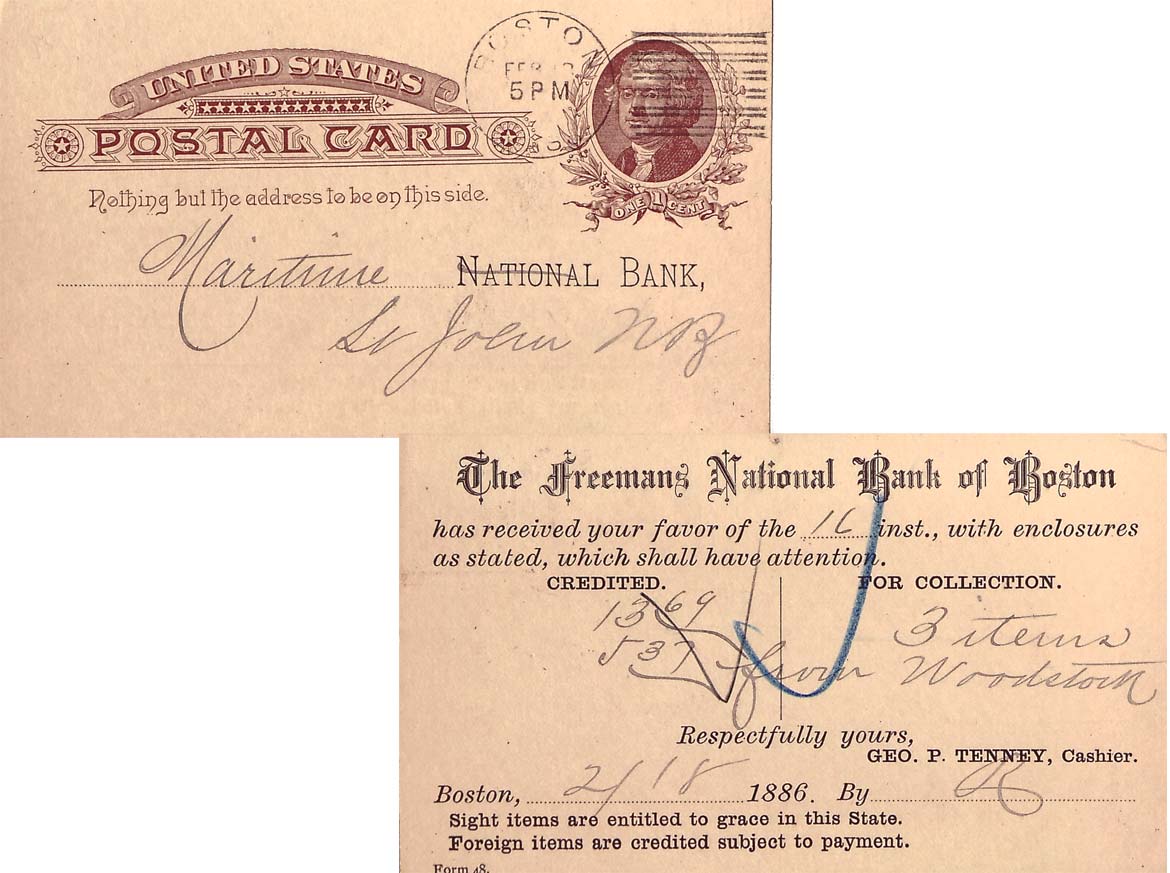 BOSTON
FEB
5 PM
UNITED STATES
POSTAL CARD
ONE 1 CENT
Nothing but the address to be on this side.
Maritime NATIONAL BANK,
St John NB
The Freemans National Bank of Boston
has received your favor of the 16 inst., with enclosures
as stated, which shall have attention.
CREDITED. FOR COLLECTION.
1369 3 items
537 from Woodstock
Respectfully yours,
GEO. P. TENNEY, Cashier.
Boston, 2/18 1886. By R
Sight items are entitled to grace in this State.
Foreign items are credited subject to payment.
Form 48.